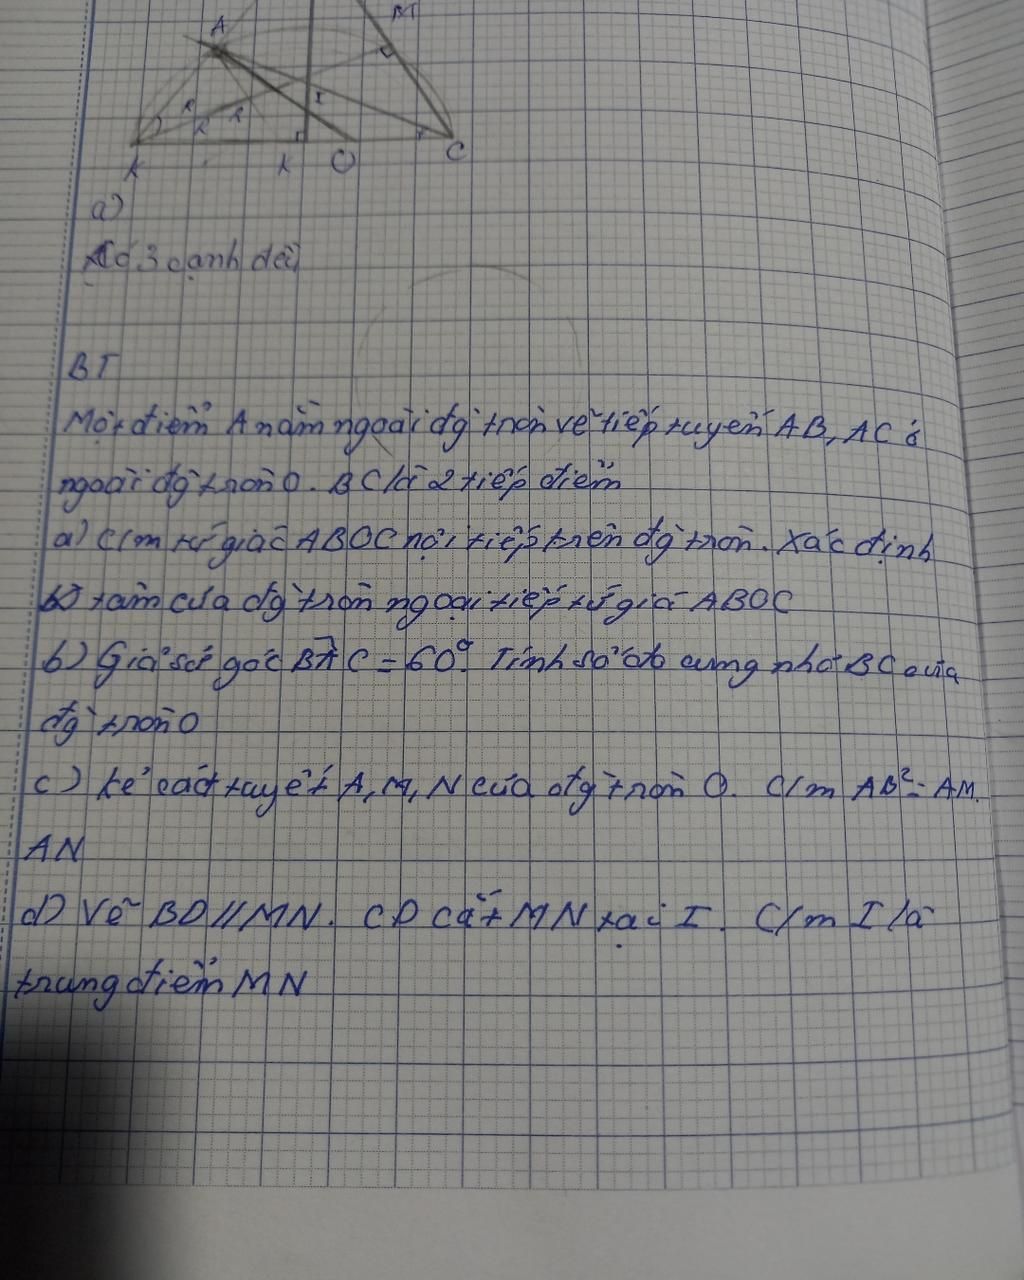 A M
I
K K O C
a)
Có 3 cạnh dài
BT
Một điểm A nằm ngoài đg tròn vẽ tiếp tuyến AB, AC ở
ngoài đg tròn O. BC là 2 tiếp điểm
a) C/m tứ giác ABOC nội tiếp trên đg tròn. Xác định
tâm của đg tròn ngoại tiếp tứ giá ABOC
b) Giả sử góc BAC = 60°. Tính số đo cung nhỏ BC của
đg tròn O
c) kẻ cát tuyết A, M, N của đg tròn O. C/m AB² = AM.
AN
d) Vẽ BD // MN. CD cắt MN tại I. C/m I là
trung điểm MN